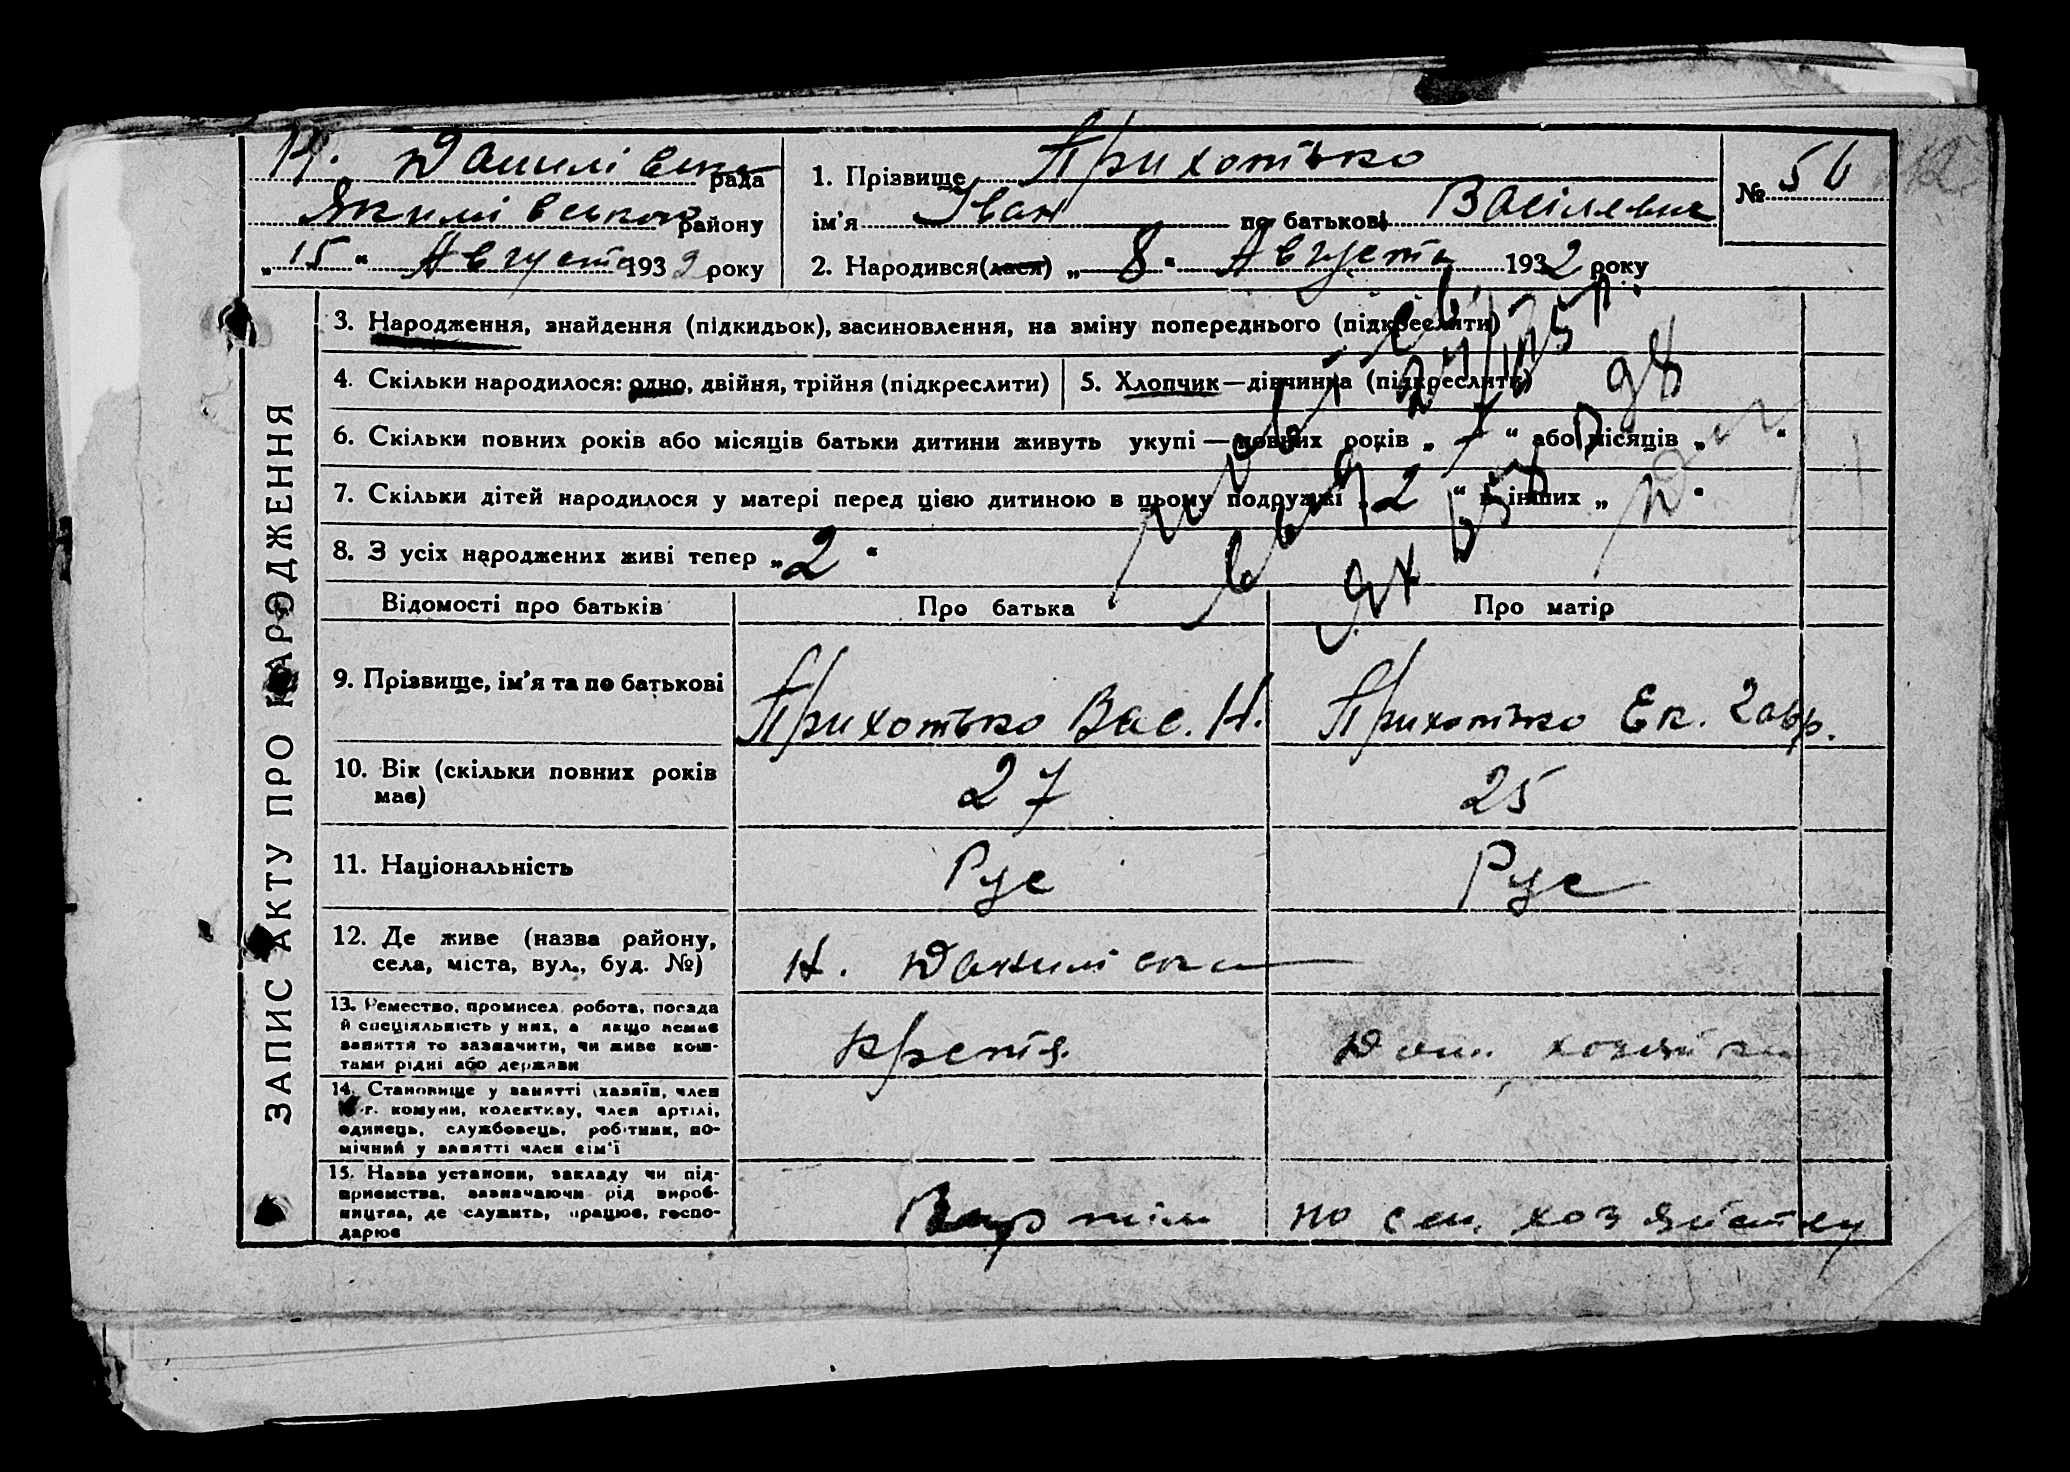 Н. Данилівська рада
Якимівського району
„15“ Августа 1932 року
1. Прізвище Прихотько
ім’я Іван по батькові Васілевич
2. Народився(лася) „8“ Августа 1932 року
№ 56
ЗАПИС АКТУ ПРО НАРОДЖЕННЯ
3. Народження, знайдення (підкидьок), засиновлення, на зміну попереднього (підкреслити)
4. Скільки народилося: одно, двійня, трійня (підкреслити)
5. Хлопчик—дівчинка (підкреслить)
6. Скільки повних років або місяців батьки дитини живуть укупі — повних років „7“ або місяців „ “
7. Скільки дітей народилося у матері перед цією дитиною в цьому подружжі „2“ в інших „ “
8. З усіх народжених живі тепер „2“
Відомості про батьків Про батька Про матір
9. Прізвище, ім’я та по батькові
Прихотько Вас. Н. Прихотько Ек. Гавр.
10. Вік (скільки повних років
має)
27 25
11. Національність Рус Рус
12. Де живе (назва району,
села, міста, вул., буд. №)
Н. Данилівка
13. Ремество, промисел, робота, посада
й спеціяльність у них, а якщо немає
заняття то зазначити, чи живе кош-
тами рідні або держави
Крест. Дом. хозяйка
14. Становище у занятті (хазяїн, член
с.-г. комуни, колективу, член артілі,
одинець, службовець, робітник, по-
мічний у занятті член сім’ї
15. Назва установи, закладу чи під-
приємства, зазначаючи рід вироб-
ництва, де служить, працює, госпо-
дарює
по сел. хозяйству